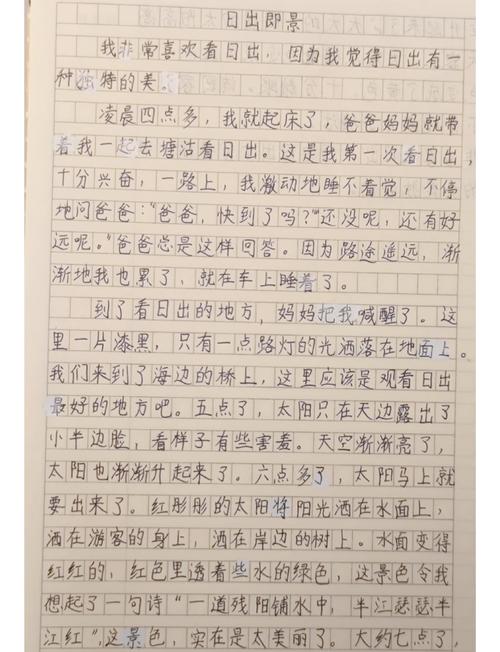 日出即景
我非常喜欢看日出，因为我觉得日出有一
种独特的美。
凌晨四点多，我就起床了，爸爸妈妈就带
着我一起去塘沽看日出。这是我第一次看日出，
十分兴奋，一路上，我激动地睡不着觉，不停
地问爸爸：“爸爸，快到了吗？”“还没呢，还有好
远呢。”爸爸总是这样回答。因为路途遥远，渐
渐地我也累了，就在车上睡着了。
到了看日出的地方，妈妈把我喊醒了。这
里一片漆黑，只有一点路灯的光洒落在地面上。
我们来到了海边的桥上，这里应该是观看日出
最好的地方吧。五点了，太阳只在天边露出了
小半边脸，看样子有些害羞。天空渐渐亮了，
太阳也渐渐升起来了。六点多了，太阳马上就
要出来了。红彤彤的太阳将阳光洒在水面上，
洒在游客的身上，洒在岸边的树上。水面变得
红红的，红色里透着些水的绿色，这景色令我
想起了一句诗“一道残阳铺水中，半江瑟瑟半
江红”，这景色，实在是太美丽了。大约七点了，